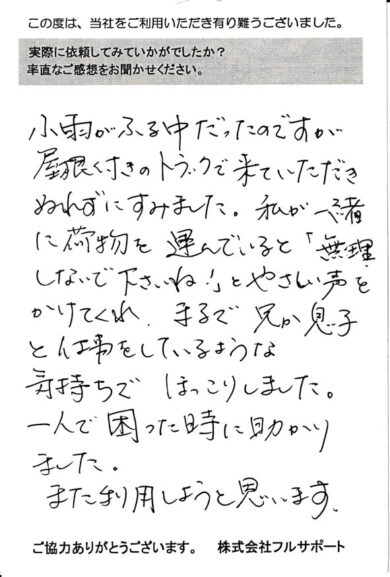 この度は、当社をご利用いただき有り難うございました。
実際に依頼してみていかがでしたか？
率直なご感想をお聞かせください。
小雨がふる中だったのですが
屋根付きのトラックで来ていただき
ぬれずにすみました。私が一緒
に荷物を運んでいると「無理
しないで下さいね！」とやさしい声を
かけてくれ、まるで兄か息子
と仕事をしているような
気持ちで ほっこりしました。
一人で困った時に助かり
ました。
また利用しようと思います。
ご協力ありがとうございます。 株式会社フルサポート